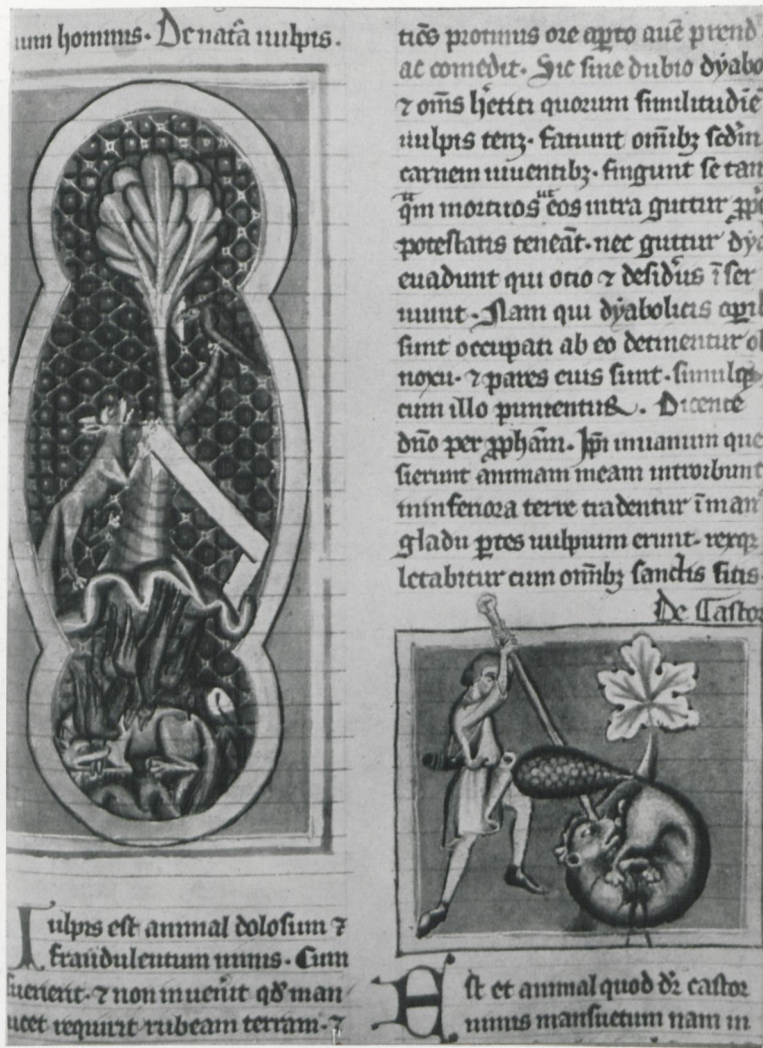 um hominis. De nat̄a uulpis.
Uulpis est animal dolosum ⁊
fraudulentum nimis. Cum
suenerit. ⁊ non inuenit qd̄ man
ucet requirit rubeam terram. ⁊
ticōs protinus ore aꝑto auē prend
ac comedit. Sic sine dubio dyabo
⁊ om̄s hetici quorum similitudiē
uulpis tenꝫ. fatiunt om̄ibꝫ sed̄m
carnem uiuentibꝫ. fingunt se tan
qm̄ mortuos ut eos intra guttur
potestatis teneāt. nec guttur dya
euadunt qui otio ⁊ desidiis ī ser
uiunt. Nam qui dyabolicis oꝑib
sunt occupati ab eo detinentur ob
noxii. ⁊ pares eius sunt. simulqꝫ
cum illo punientur. Dicente
dn̄o per ꝓpham̄. Ip̄i inuanum que
sierunt animam meam introibunt
in inferiora terre tradentur ī man
gladii ꝑtes uulpium erunt. rexqꝫ
letabitur cum om̄ibꝫ sanctis suis.
De Castor
Est et animal quod dr̄ castor
nimis mansuetum nam in